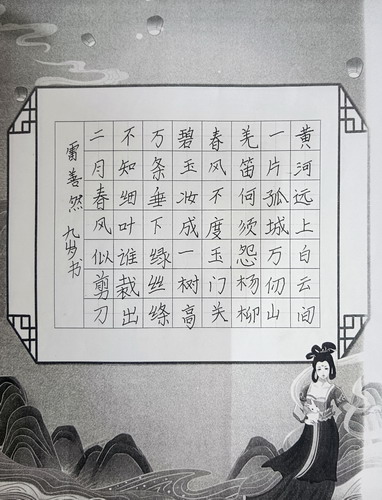 黄河远上白云间
一片孤城万仞山
羌笛何须怨杨柳
春风不度玉门关
碧玉妆成一树高
万条垂下绿丝绦
不知细叶谁裁出
二月春风似剪刀
雷善然 九岁书